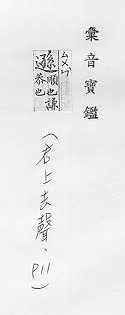 彙音寶鑑
遜
順也謙
恭也
(君上去聲、P11)